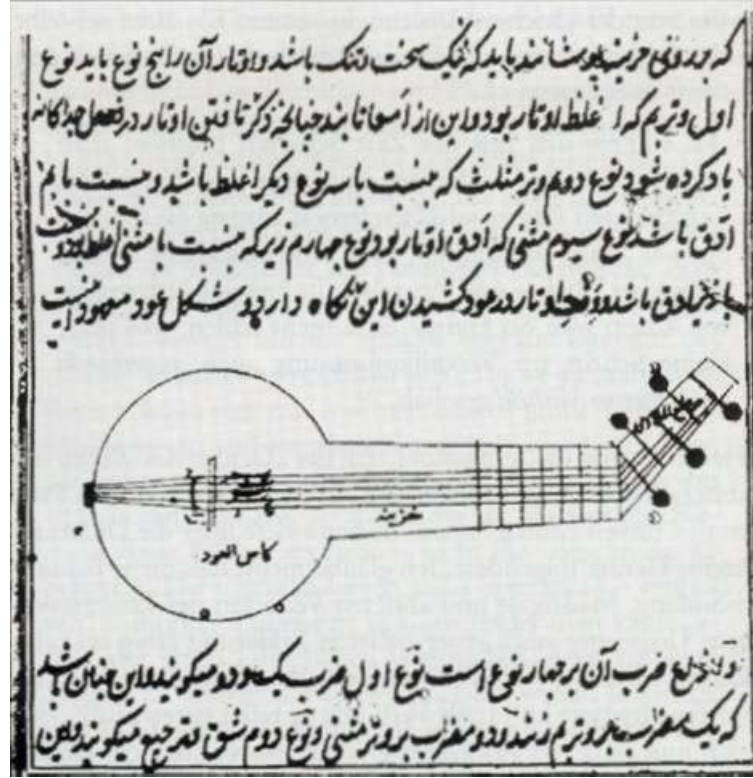 که بر روی خزینه پوشانند باید که نیک سخت و تنک باشد و اوتار آن را پنج نوع باید نوع
اول وتر بم که اغلظ اوتار بود و این از امعا تابند چنانچه ذکر تافتن اوتار در فصل جداگانه
یاد کرده شود نوع دوم وتر مثلث که بنسبت با سه نوع دیگر اغلظ باشد و بنسبت با بم
ادق باشد نوع سیوم مثنی که ادق اوتار بود نوع چهارم زیر که بنسبت با مثنی اغلظ بود
ادق باشد و اوتار در عود کشیدن این نگاه دارد و شکل عود معهود اینست
خزینه
کاس العود
ضرب آن بر چهار نوع است نوع اول ضرب یک و دو میگویند و این چنان باشد
که یک مضراب بر وتر بم زنند و دو مضراب بر وتر مثنی و نوع دوم شق و ترجیع میگویند و این